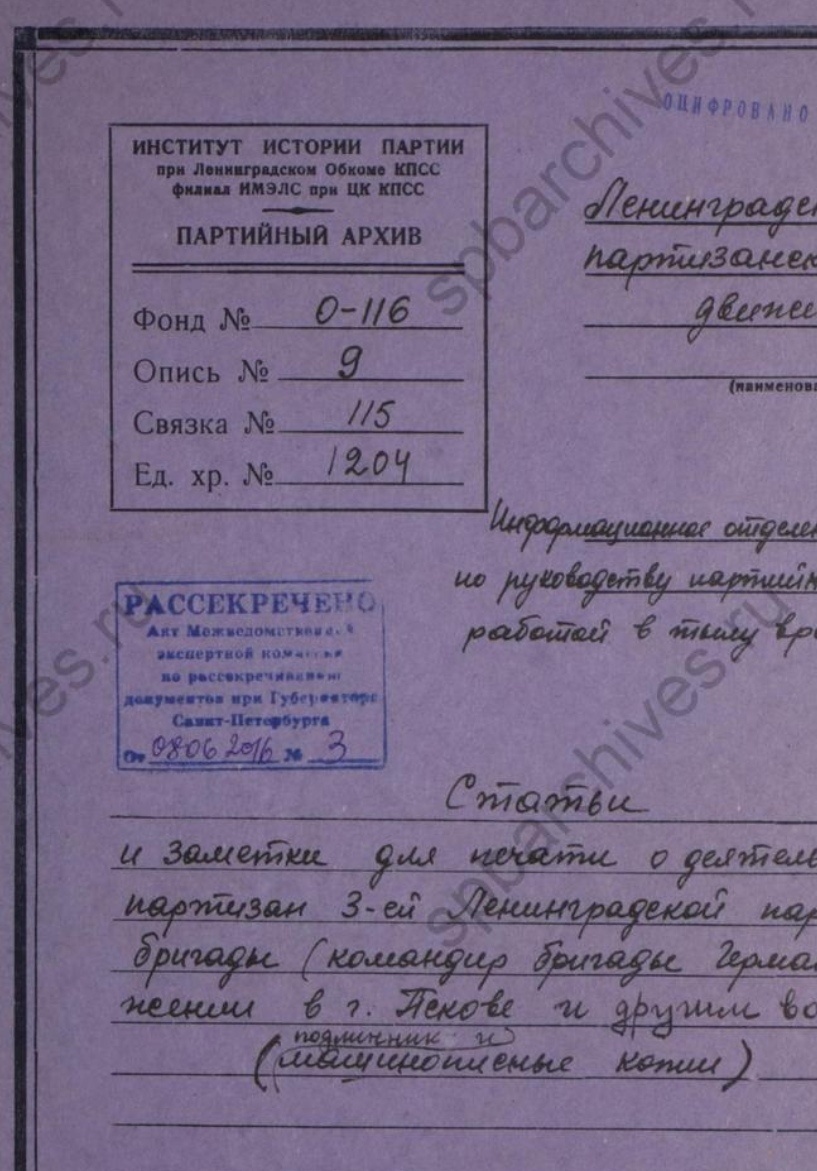 ОЦИФРОВАНО
ИНСТИТУТ ИСТОРИИ ПАРТИИ
при Ленинградском Обкоме КПСС
филиал ИМЭЛС при ЦК КПСС
ПАРТИЙНЫЙ АРХИВ
Фонд № О-116
Опись № 9
Связка № 115
Ед. хр. № 1204
Ленинградск
партизанск
движе
(наименова
Информационное отделен
по руководству партийн
работой в тылу вра
РАССЕКРЕЧЕНО
Акт Межведомственной
экспертной комиссии
по рассекречиванию
документов при Губернаторе
Санкт-Петербурга
от 08.06 2016 № 3
Статьи
и заметки для печати о деятель
партизан 3-ей Ленинградской пар
бригады (командир бригады Герман
жении в г. Пскове и другим во
подлинник и
(машинописные копии)
spbarchives.ru